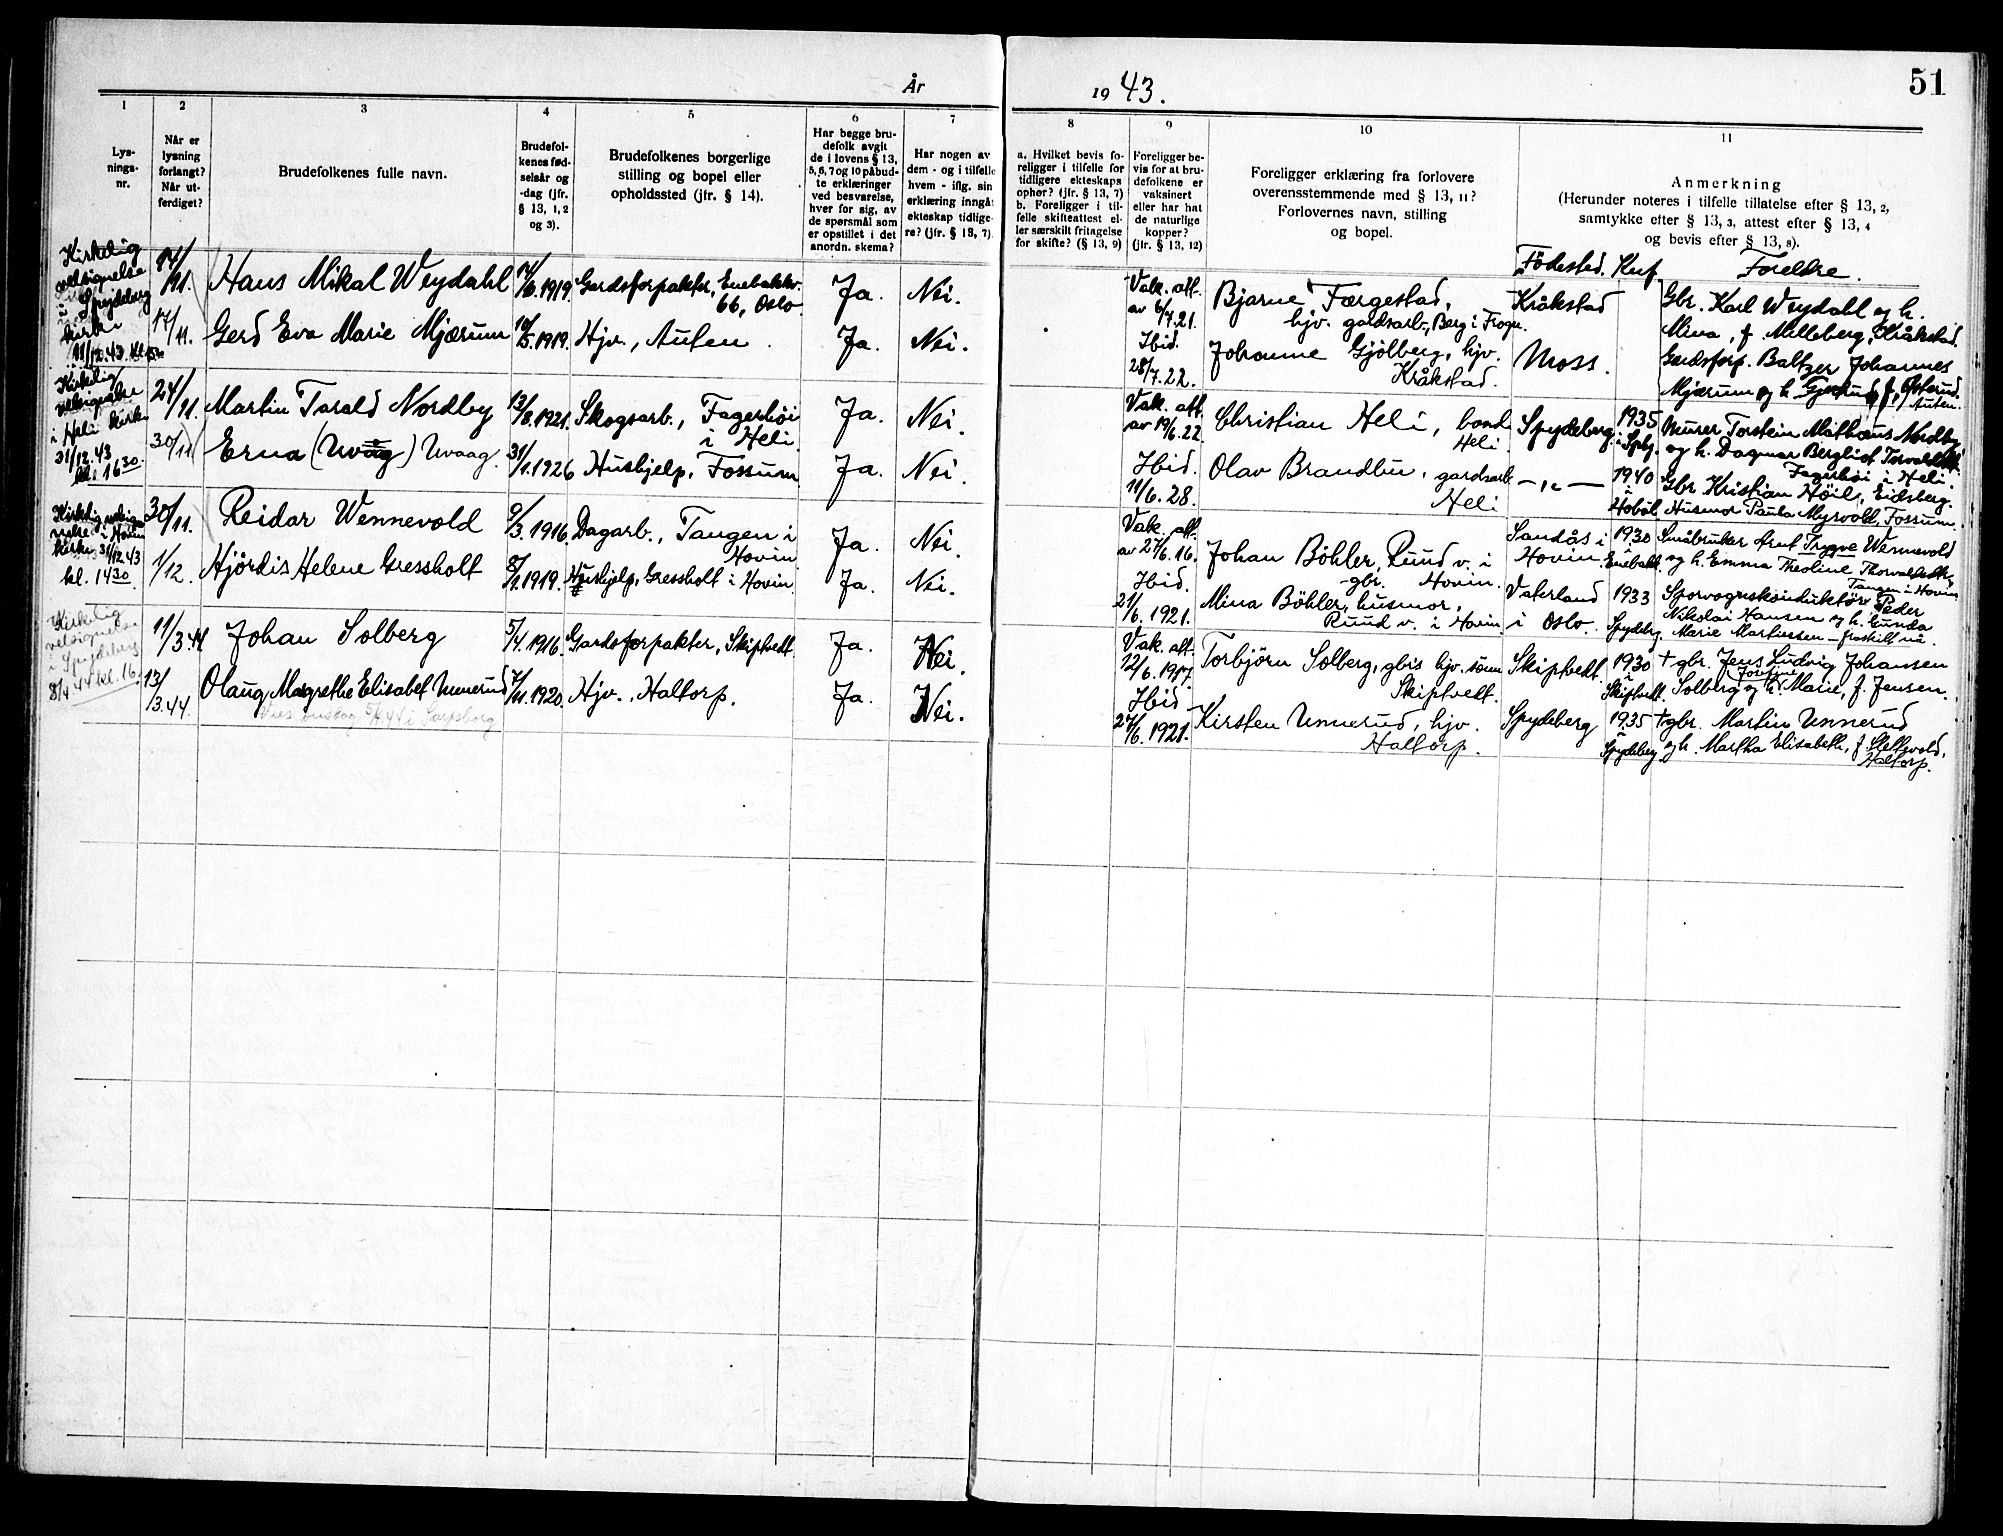 51
År 1943.
1
2
3
4
5
6
7
8
9
10
11
Lys-
nings-
nr.
Når er
lysning
forlangt?
Når ut-
ferdiget?
Brudefolkenes fulle navn.
Brudefol-
kenes fød-
selsår og
-dag (jfr.
§ 13, 1, 2
og 3).
Brudefolkenes borgerlige
stilling og bopel eller
opholdssted (jfr. § 14).
Har begge bru-
defolk avgit
de i lovens § 13,
5, 6, 7 og 10 påbud-
te erklæringer
ved besvarelse,
hver for sig, av
de spørsmål som
er opstillet i det
anordn. skema?
Har nogen av
dem - og i tilfelle
hvem - iflg. sin
erklæring inngå
ekteskap tidlige-
re? (jfr. § 13, 7)
a. Hvilket bevis fo-
religger i tilfelle for
tidligere ekteskaps
ophør? (jfr. § 13, 7)
b. Foreligger i til-
felle skifteattest el-
ler særskilt fritagelse
for skifte? (§ 13, 9)
Foreligger be-
vis for at bru-
defolkene er
vaksinert
eller har hat
de naturlige
kopper?
(jfr. § 13, 12)
Foreligger erklæring fra forlovere
overensstemmende med § 13, 11?
Forlovernes navn, stilling
og bopel.
Anmerkning
(Herunder noteres i tilfelle tillatelse efter § 13, 2,
samtykke efter § 13, 3, attest efter § 13, 4
og bevis efter § 13, 8).
Födested. Kuf. Foreldre.
Kirkelig
velsignelse
i Spydeberg
kirke
11/12.43. kl.
14/11.
Hans Mikal Weydahl
14/6.1919.
Gardsforpakter, Enebakkv.
66, Oslo.
Ja.
Nei.
Vak. att.
av 6/7.21.
Bjarne Færgestad,
hjv. gardsarb., Berg i Frogn.
Kråkstad
Gbr. Karl Weydahl og h.
Mina, f. Milleberg, Kråkstad.
17/11.
Gerd Eva Marie Mjærum
12/5.1919.
Hjv., Auten.
Ja.
Nei.
Ibid.
28/7.22.
Johanne Gjölberg, hjv.
Kråkstad.
Moss.
Gardsforp. Baltzer Johannes
Mjærum og h. Gjertrud, f. Österud.
Auten.
Kirkelig
velsignelse
i Heli kirke
31/12.43
kl. 1630
24/11.
Martin Torald Nordby
13/8.1921.
Skogsarb., Fagerhöi
i Heli.
Ja.
Nei.
Vak. att.
av 19/6.22.
Christian Heli, bonde
Heli.
Spydeberg
1935
i Spbg.
Murer Torstein Mathæus Nordby
og h. Dagmar Bergliot
Fagerhöi i Heli.
30/11
Erna (Uvaag) Uvaag.
31/1.1926
Hushjelp, Fossum
Ja.
Nei.
Ibid.
11/6.28.
Olav Brandbu, gardsarb.
Heli
— „ —
1940
i
Hobøl.
Gbr. Kristian Höil, Eidsberg.
Husmor Paula Myrvold, Fossum.
Kirkelig velsig-
nelse i Hovin
kirke 31/12 43
kl. 1430
30/11.
Reidar Wennevold
9/3.1916.
Dagarb., Tangen i
Hovin
Ja.
Nei.
Vak. att.
av 27/6.16.
Johan Böhler, Ruud v. i
gbr. Hovin.
Sandås i
Hovin
1930
i
Enebakk.
Småbruker Arnt Trygve Wennevold
og h. Emma Theoline
Tangen i Hovin
1/12.
Hjördis Helene Gressholt
8/1.1919.
Hushjelp, Gressholt i Hovin
Ja.
Nei.
Ibid.
21/6.1921.
Mina Böhler, husmor,
Ruud v. i Hovin.
Vaterland
i Oslo.
1933
Spydebg.
Sporvognskonduktör Peder
Nikolai Hansen og h. Gunda
Marie Martinsen – fraskilt nå.
Kirkelig
velsignelse
i Spydeberg
8/4 44 kl. 16.
11/3.44
Johan Solberg
5/4.1916.
Gardsforpakter, Skiptvedt.
Ja.
Nei.
Vak. att.
12/6.1917.
Torbjörn Solberg, gbrs hjv. sönn
Skiptvedt.
Skiptvedt.
1930
i
Skiptvedt.
† gbr. Jens Ludvig Johansen
Solberg og h. Josefine Marie, f. Jensen.
13/3.44.
Olaug Margrethe Elisabet Unnerud
Vies onsdag 5/4.44 i Sarpsborg
7/11.1920.
Hjv., Haltorp.
Ja.
Nei.
Ibid
27/6.1921.
Kirsten Unnerud, hjv.
Haltorp.
Spydeberg
1935
i
Spydeberg
† gbr. Martin Unnerud
og h. Martha Elisabeth, f. Slettevold,
Haltorp.